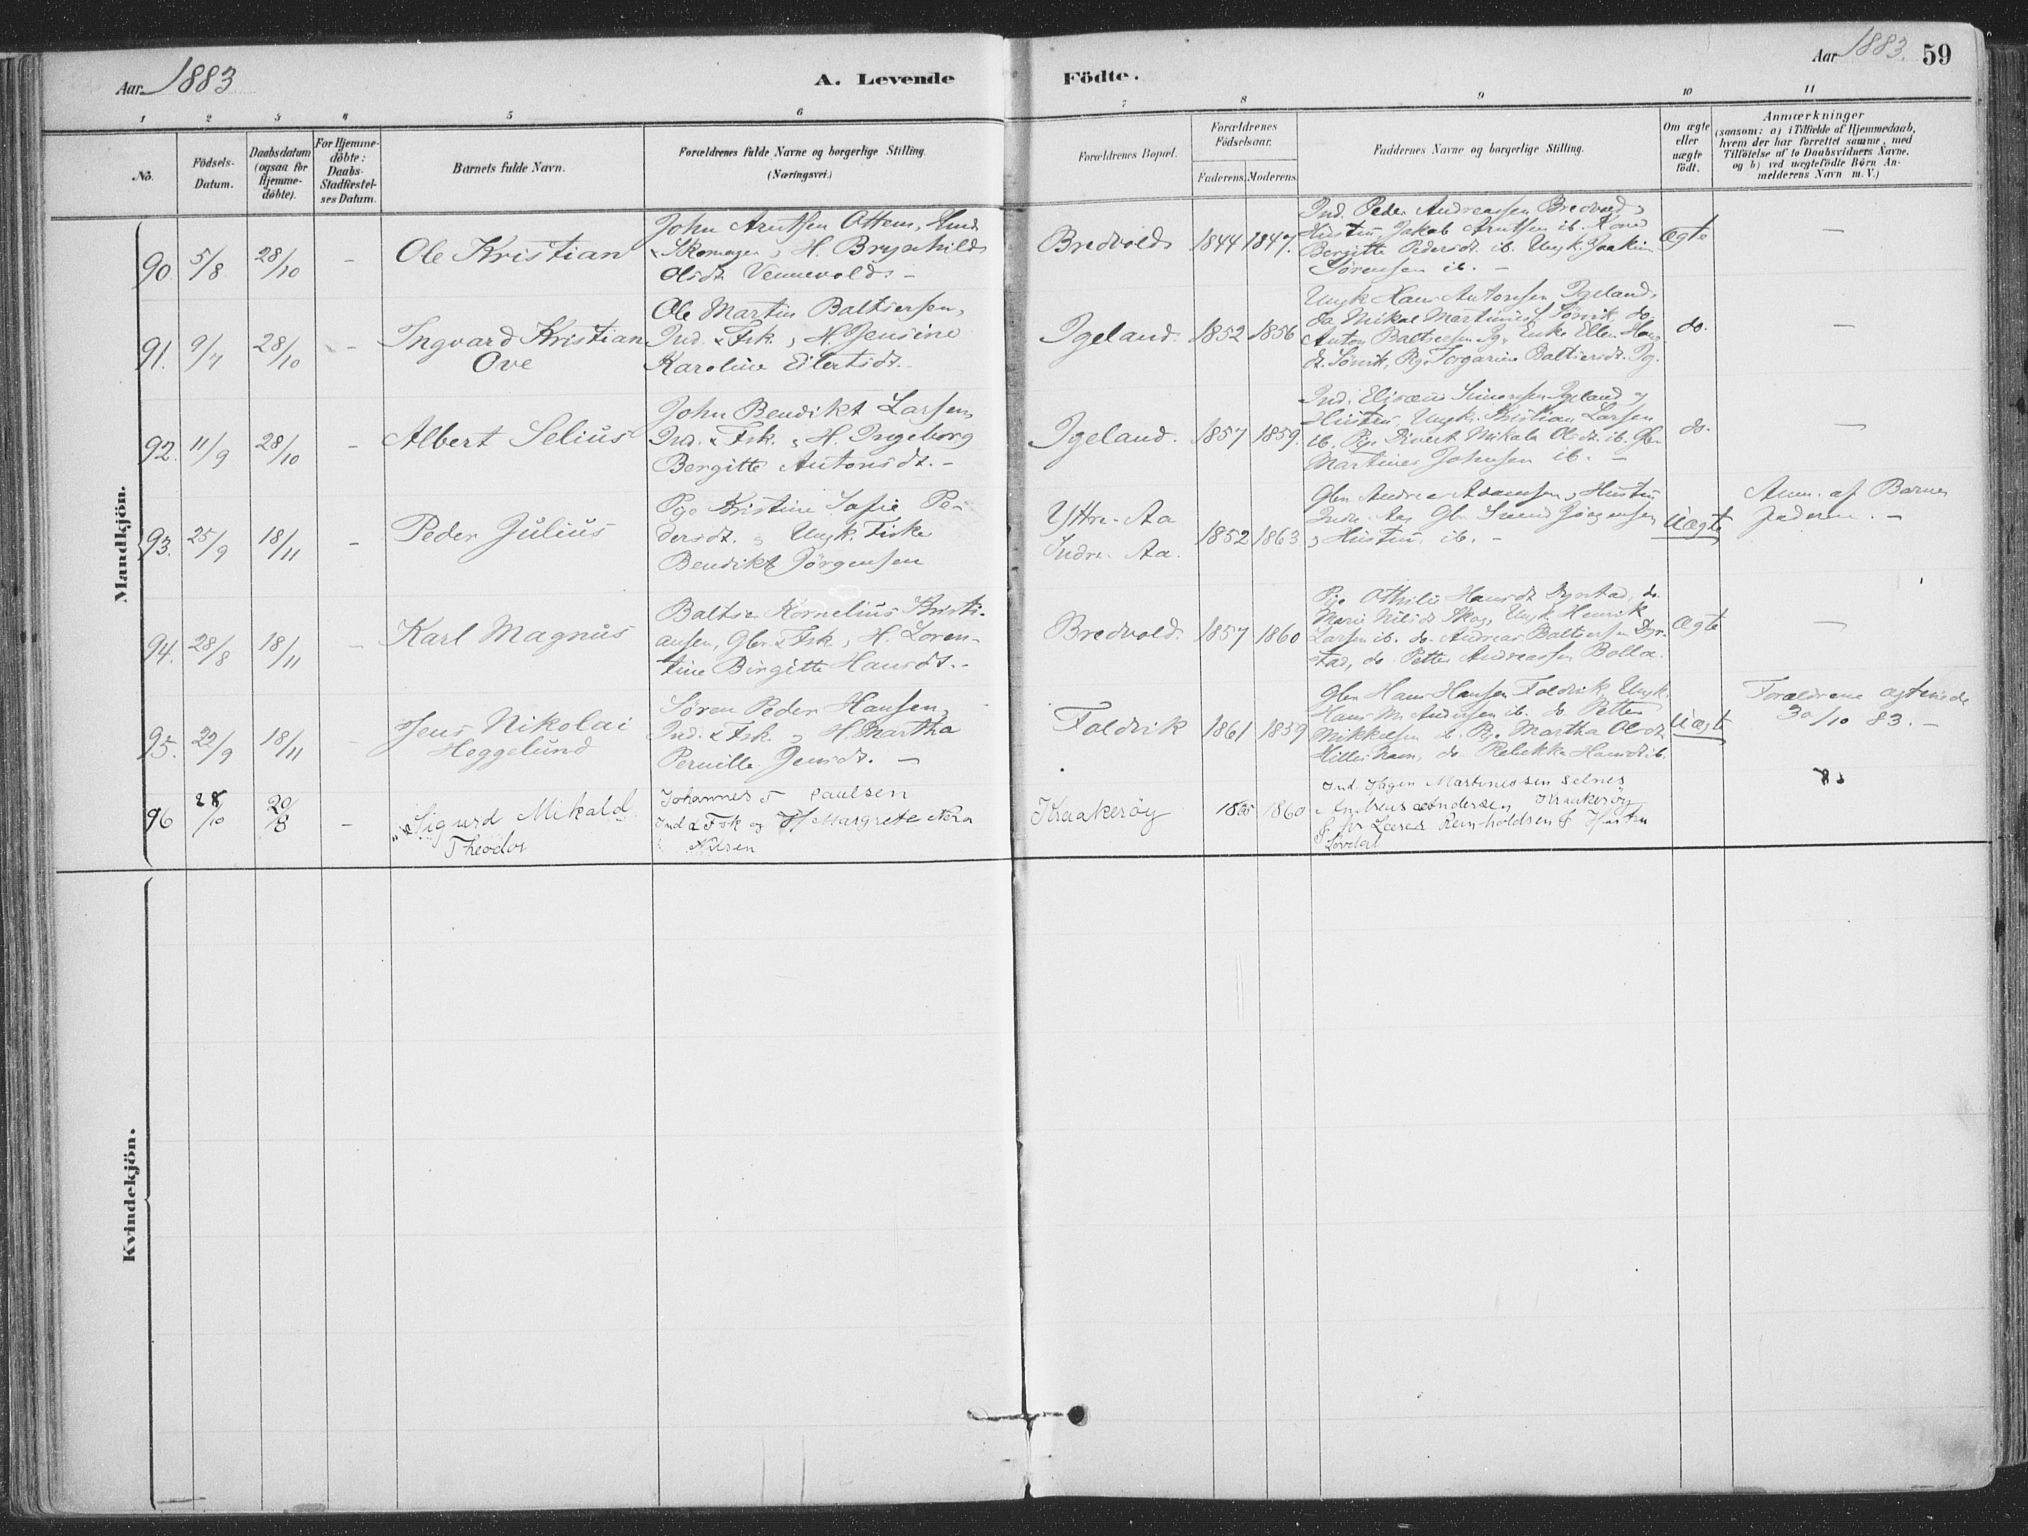 Aar 1883
A. Levende Födte.
Aar 1883. 59
1 2 3 4 5 6 7 8 9 10 11
No.
Födsels-
Datum.
Daabsdatum
(ogsaa for
Hjemme-
döbte).
For Hjemme-
döbte:
Daabs-
Stadfæstel-
ses Datum.
Barnets fulde Navn.
Forældrenes fulde Navne og borgerlige Stilling.
(Næringsvei.)
Forældrenes Bopæl.
Forældrenes
Födselsaar.
Faderens. Moderens.
Faddernes Navne og borgerlige Stilling.
Om ægte
eller
uægte
født.
Anmærkninger
(saasom: a) i Tilfælde af Hjemmedaab,
hvem der har forrettet samme, med
Tilføielse af to Daabsvidners Navne,
og b) ved uægtefödte Börn An-
melderens Navn m. V.)
Mandkjön.
90. 5/8 28/10 – Ole Kristian
John Arntsen Ottem, Ind
& Skomager, H. Brynhild
Olsdt. Vennevold. –
Bredvold 1844 1847.
Ind. Peder Andreassen Bredvold,
Hustru, Jakob Arntsen ib. Kone
Bergitte Pedersdt. ib. Ungk. Joakim
Sörensen ib. –
Ægte –
91. 9/7 28/10 – Ingvard Kristian
Ove
Ole Martin Baltsersen,
Ind. & Fsk. , H. Jensine
Karoline Eilertsdt. –
Igeland. 1852 1856
Ungk Hans Antonsen Igeland,
do Mikal Martinus Sörvik, do.
Anton Baltsersen Ig. Enke Ellen Hans
dt. Sörvik, Pige Torgarine Baltsersdt. Ig.
do. –
92. 11/9 28/10 – Albert Selius
John Bendikt Larsen,
Ind. & Fsk. , H. Ingeborg
Bergitte Antonsdt. –
Igeland. 1857 1859.
Ind. Elisæus Simonsen Igeland og
Hustru, Ungk. Kristian Larsen
ib. Pige Sivert Mikala Olsdt. ib. Gbr.
Martines Johnsen ib. –
do. –
93. 25/9 18/11 – Peder Julius
Pige Kristine Sofie Pe-
dersdt. , Ungk. Fisker
Bendikt Jörgensen
Yttre Aa
Indre Aa. 1852 1863
Gbr. Andreas Adamsen, Hustru
Indre Aa, Gbr. Svend Jörgensen
, Hustru ib. –
Uægte
Anm. af Barnets
fader. –
94. 28/8 18/11 – Karl Magnus
Baltser Kornelius Kristi-
ansen, Gbr. & Fsk. , H. Loren-
tine Birgitte Hansdt. –
Bredvold. 1857 1860
Pige Othilie Hansdt Dyrstad, do.
Marie Nilsdt Skog, Ungk Henrik
Larsen ib. do. Andreas Baltsersen Dyr-
stad, do. Petter Andreassen Bolla.
Ægte –
95. 22/9 18/11 – Jens Nikolai
Hoggelund
Sören Peder Hansen,
Ind. & Fsk. , H. Martha
Pernille Jensdt. –
Foldvik 1861 1859
Gbr Hans Hansen Foldvik, Ungk.
Hans M. Andersen ib. do. Petter
Mikkelsen ib. Pige Martha Olsdt
Hilleshamn, do. Rebekka Hansdt ib.
Uægte
Forældrene ægteviede
30/10 83. –
96 28/10 20/8 – Sigurd Mikal
Theodor
Johannes T Paulsen
Ind & Fsk og H Margrete Nora
Nilsen
Kraakeröy 1860
Ind. Hagen Martinussen Selnes
Andreas Andersen Kraakeröy
Reinholdsen & Hustru
83
Kvindekjön.